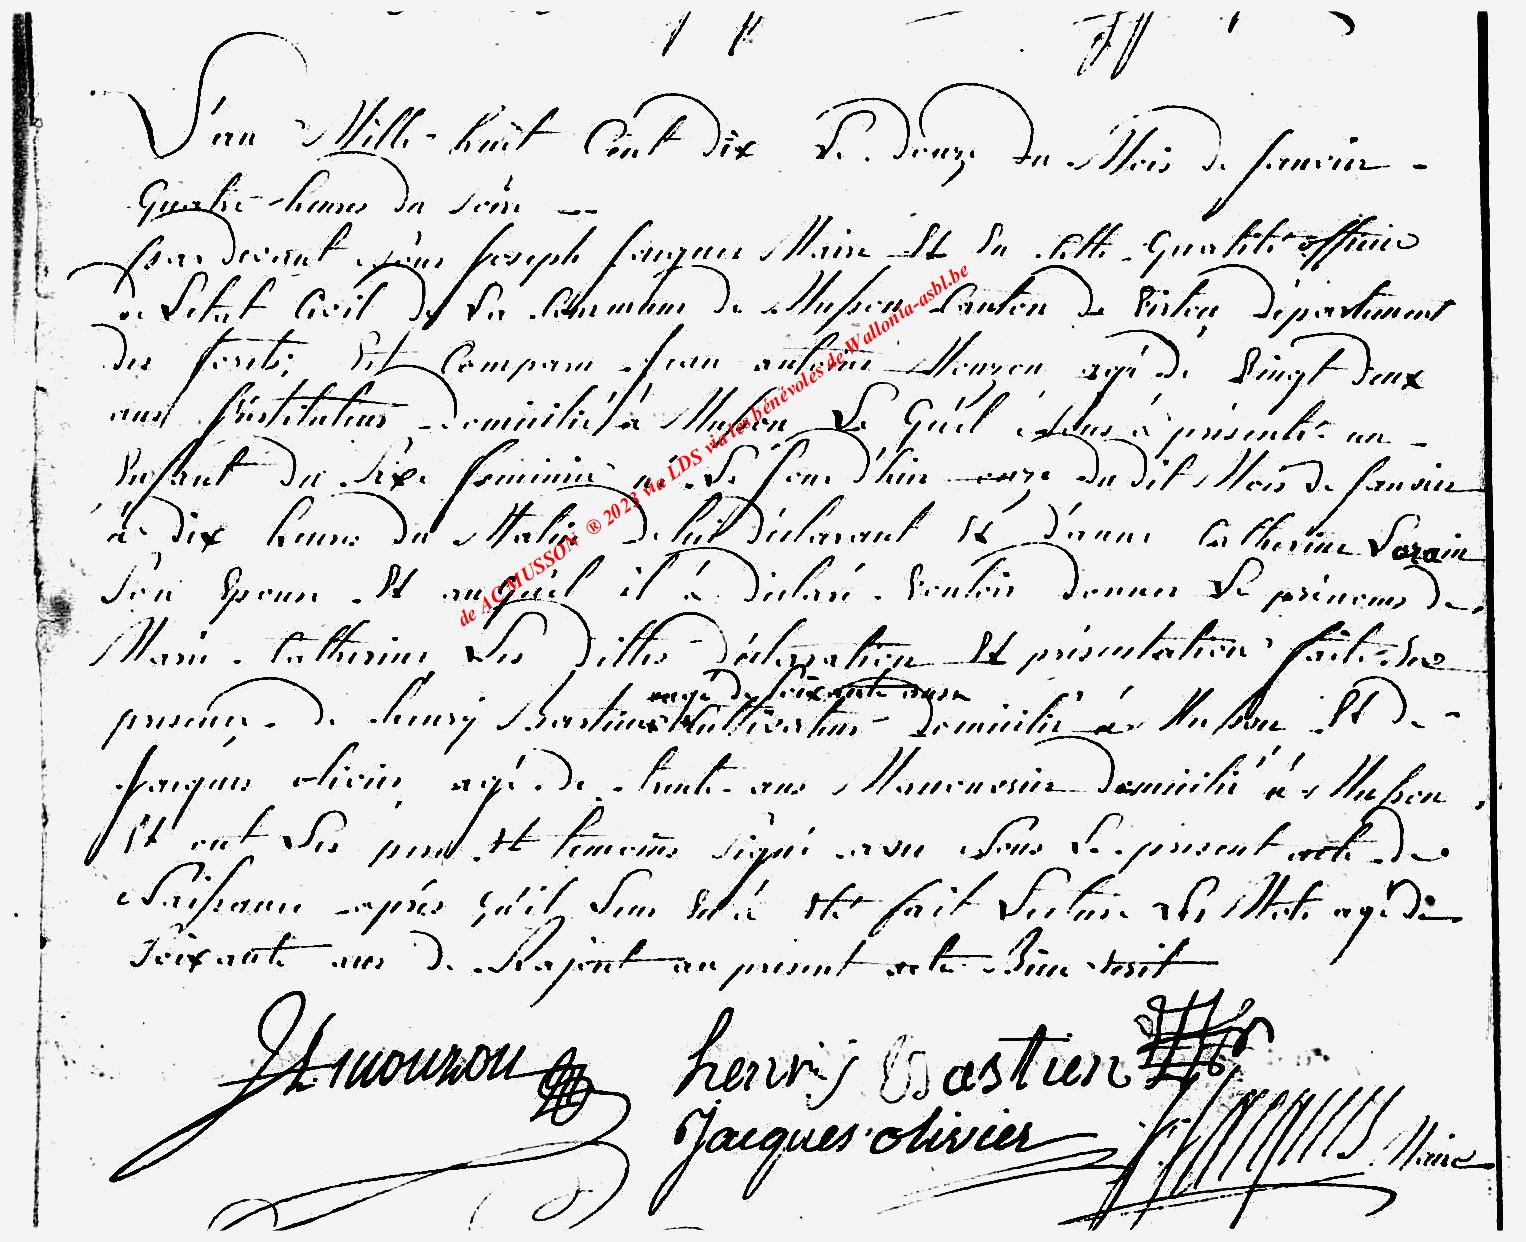 L'an Mille huit Cent dix Le douze du Mois de Janvier
Quatre heures du soir
pardevant Nous Joseph Jacques Maire Et En cette Qualité officier
de L'etat Civil de La Commune de Musson Canton de Virton département
des forets, Est Comparu Jean antoine Mouzon agé de Vingt deux
ans Instituteur domicilié à Musson Le Quel à Nous à présenté un
Enfant du Séxe feminin né Le Jour d'hier onze du dit Mois de Janvier
à dix heures du Matin de lui déclarant Et d'anne Catherine Lorain
Son Epouse Et auquel il à déclaré Vouloir donner Le prénoms de
Marie Catherine Les dittes déclaration Et présentation faite En
agé de soixante ans
presence de henry Bastien Cultivateur domicilié à Musson Et de
Jacques olivier agé de trente ans Manouvrier domicilié à Musson
Et ont Les pere Et temoins signé avec Nous Le présent acte de
Naissance après qu'il Leur En à Eté fait Lecture Les Mots agé de
Soixante ans de Rajout au present acte
JAmouzon henrij Bastien
Jacques olivier JJacques Maire
de AC MUSSON ® 2023 via LDS via les bénévoles de Wallonia-asbl.be